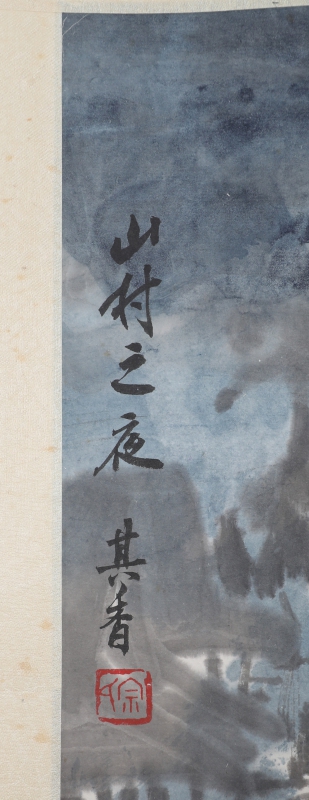 山村之夜
其香
宗